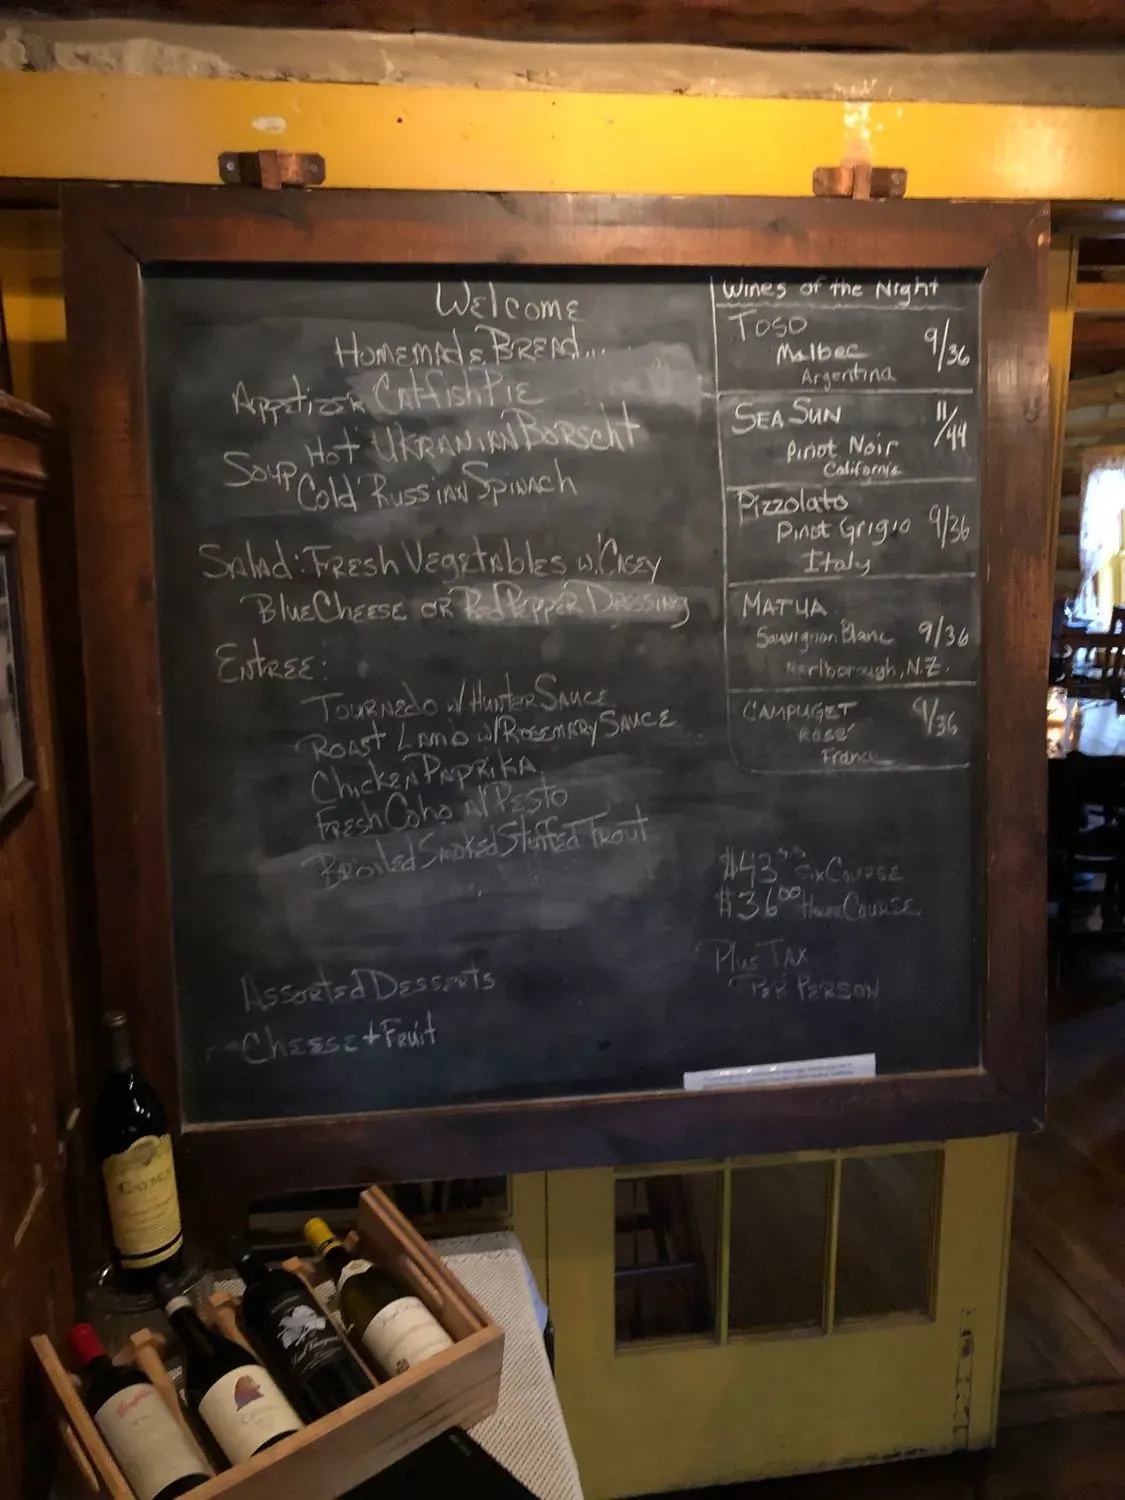 Welcome
Homemade Bread...
Appetizer Catfish Pie
Hot Ukranian Borscht
Soup
Cold Russian Spinach
Salad: Fresh Vegetables w/
Blue Cheese or Red Pepper Dressing
Entree:
Tournedo w/ Hunter Sauce
Roast Lamb w/ Rosemary Sauce
Chicken Paprika
Fresh Coho w/ Pesto
Broiled Smoked Stuffed Trout
Assorted Desserts
Cheese + Fruit
Wines of the Night
Toso 9/36
Malbec
Argentina
Sea Sun 11/44
Pinot Noir
California
Pizzolato
Pinot Grigio 9/36
Italy
Matua
Sauvignon Blanc 9/36
Marlborough, N.Z.
Campuget 9/36
Rose'
France
$43 Six Course
$36.00 Course
Plus Tax
Per Person